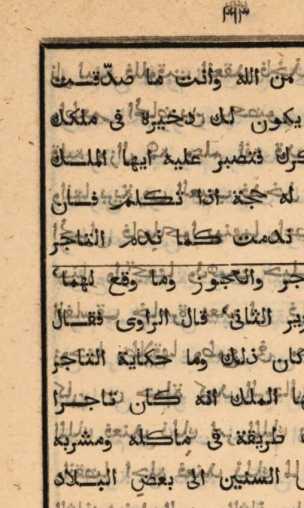 من الله وأنت ما صدّقـت
يكون لك ذخيرة فى ملكك
فتصبر عليه ايها الملـك
له حجة اذا تـكلم فـان
ندمت كـما نـدم التاجر
والعجوز وما وقع لهما
الثانى قال الراوى فقـال
كان ذلك وما حكاية التاجر
الملك انه كان تاجـرا
طريقة فى ماكله ومشربه
السنين الى بعض البـلاد